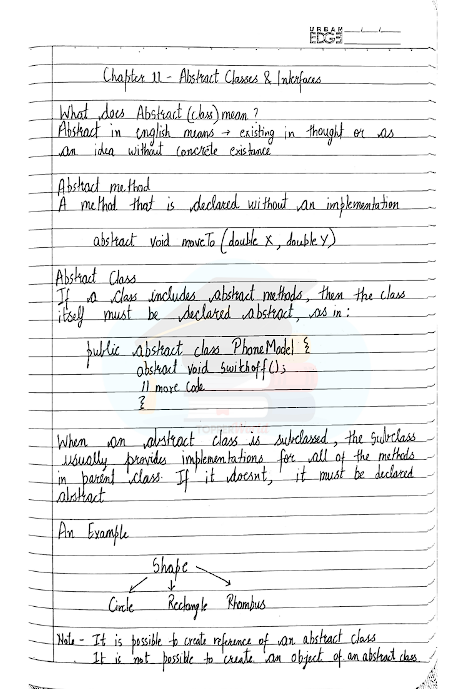 URBAN
EDGE
Chapter 11 - Abstract Classes & Interfaces
What does Abstract (class) mean?
Abstract in english means → existing in thought or as
an idea without concrete existance
Abstract method
A method that is declared without an implementation
abstract void moveTo (double X, double Y)
Abstract Class
If a class includes abstract methods, then the class
itself must be declared abstract, as in:
public abstract class PhoneModel {
abstract void switchoff();
// more code
}
When an abstract class is subclassed, the subclass
usually provides implementations for all of the methods
in parent class. If it doesnt, it must be declared
abstract
An Example
Shape
Circle Rectangle Rhombus
Note - It is possible to create reference of an abstract class
It is not possible to create an object of an abstract class